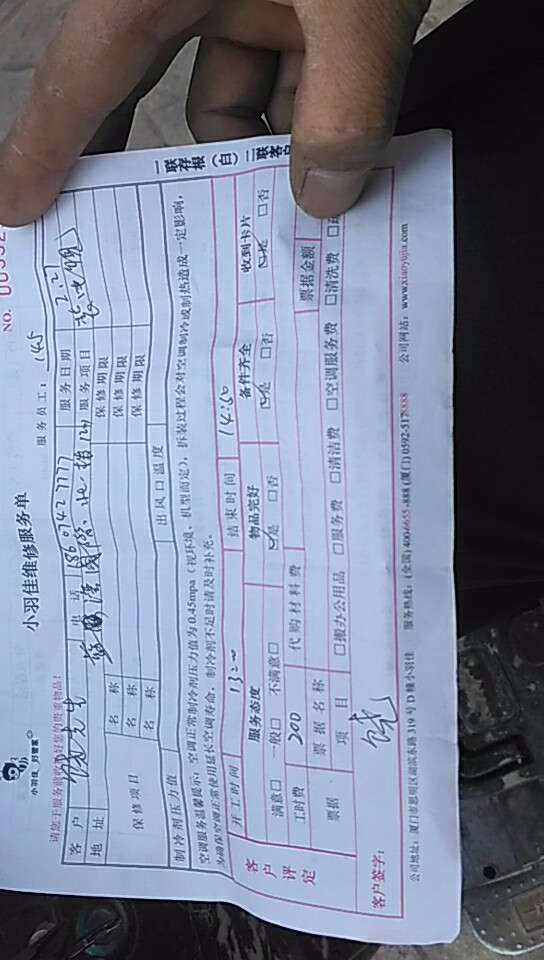 小羽佳 好管家
小羽佳维修服务单
NO. 00552
服务员工: 145
请您于服务前收好您的贵重物品!
客户 饶先生 电话 18604277777 服务日期 2.21
地址 服务项目 装电视
保修项目 名称 保修期限
名称 保修期限
名称 保修期限
制冷剂压力值 出风口温度
空调服务温馨提示:空调正常制冷剂压力值为0.45mpa(视环境、机型而定),拆装过程会对空调制冷或制热造成一定影响,
为确保空调正常使用延长空调寿命,制冷剂不足时请及时补充。
开工时间 13:00 结束时间 14:50
客户评定
服务态度 物品完好 备件齐全 收到卡片
满意□ 一般□ 不满意□ ☑是 □否 ☑是 □否 ☑是 □否
工时费 200 代购材料费
票据 票据名称 票据金额
项目 □搬办公用品 □服务费 □清洁费 □空调服务费 □清洗费
客户签字: 饶
公司地址:厦门市思明区湖滨东路319号D幢小羽佳 服务热线:(全国)4006655-888(厦门)0592-5178888 公司网站:www.xiaoyujia.com
一联存根(白) 二联客户